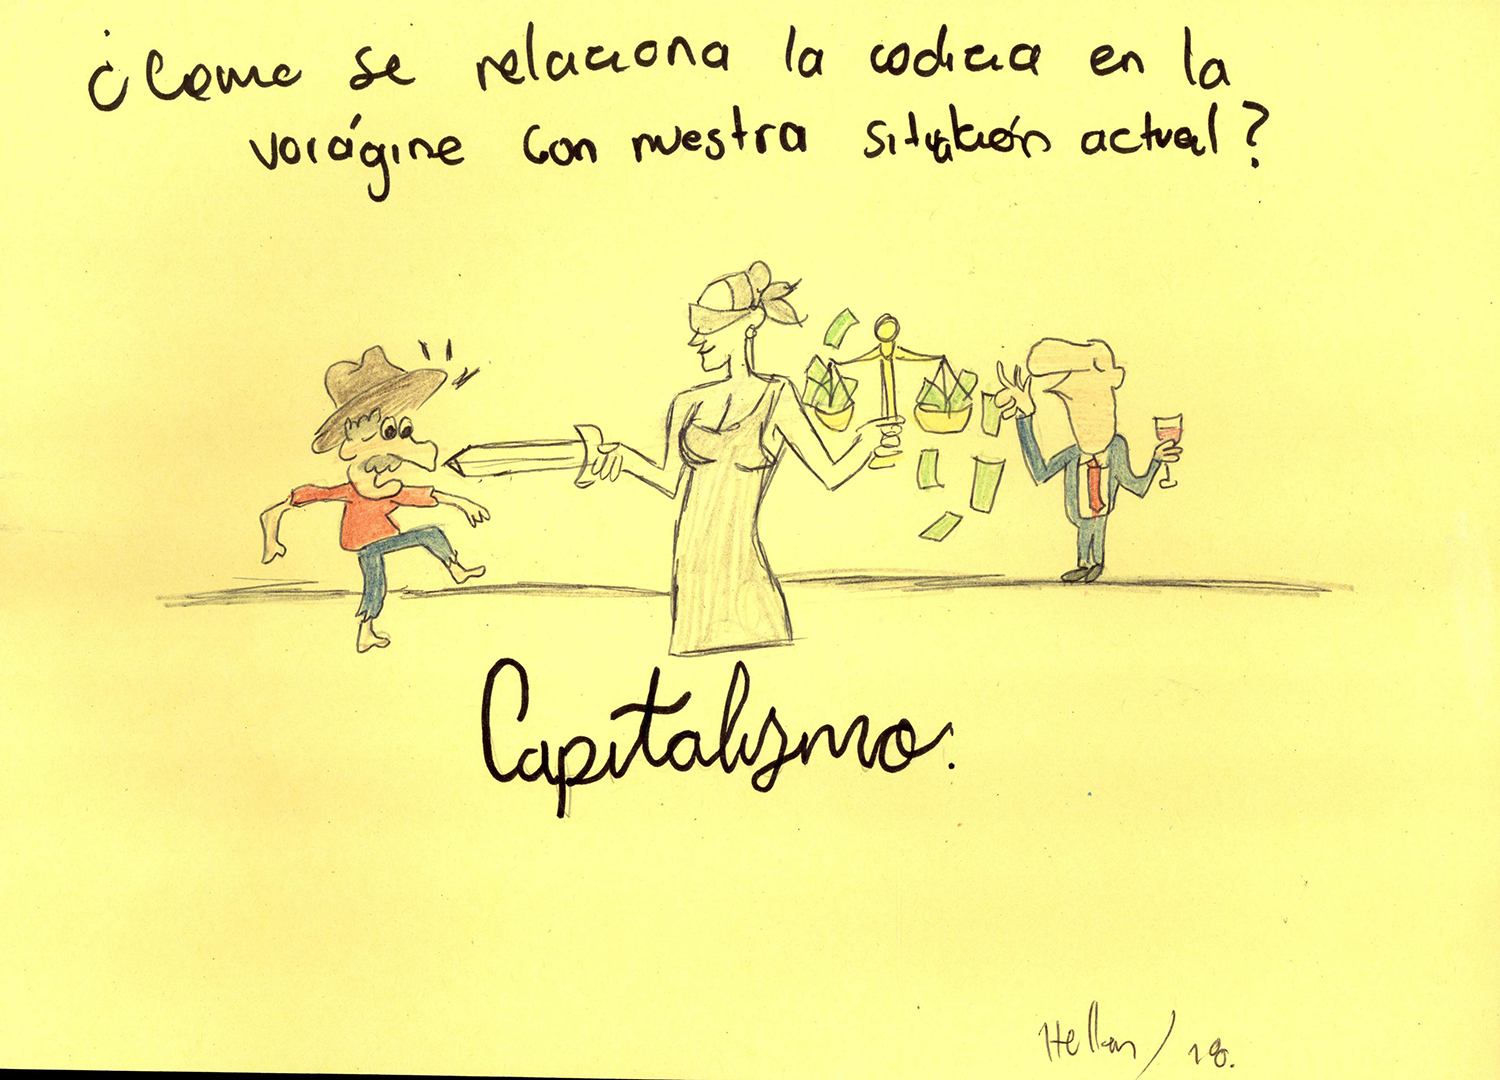 ¿Como se relaciona la codicia en la
vorágine con nuestra situación actual?
Capitalismo.
18.